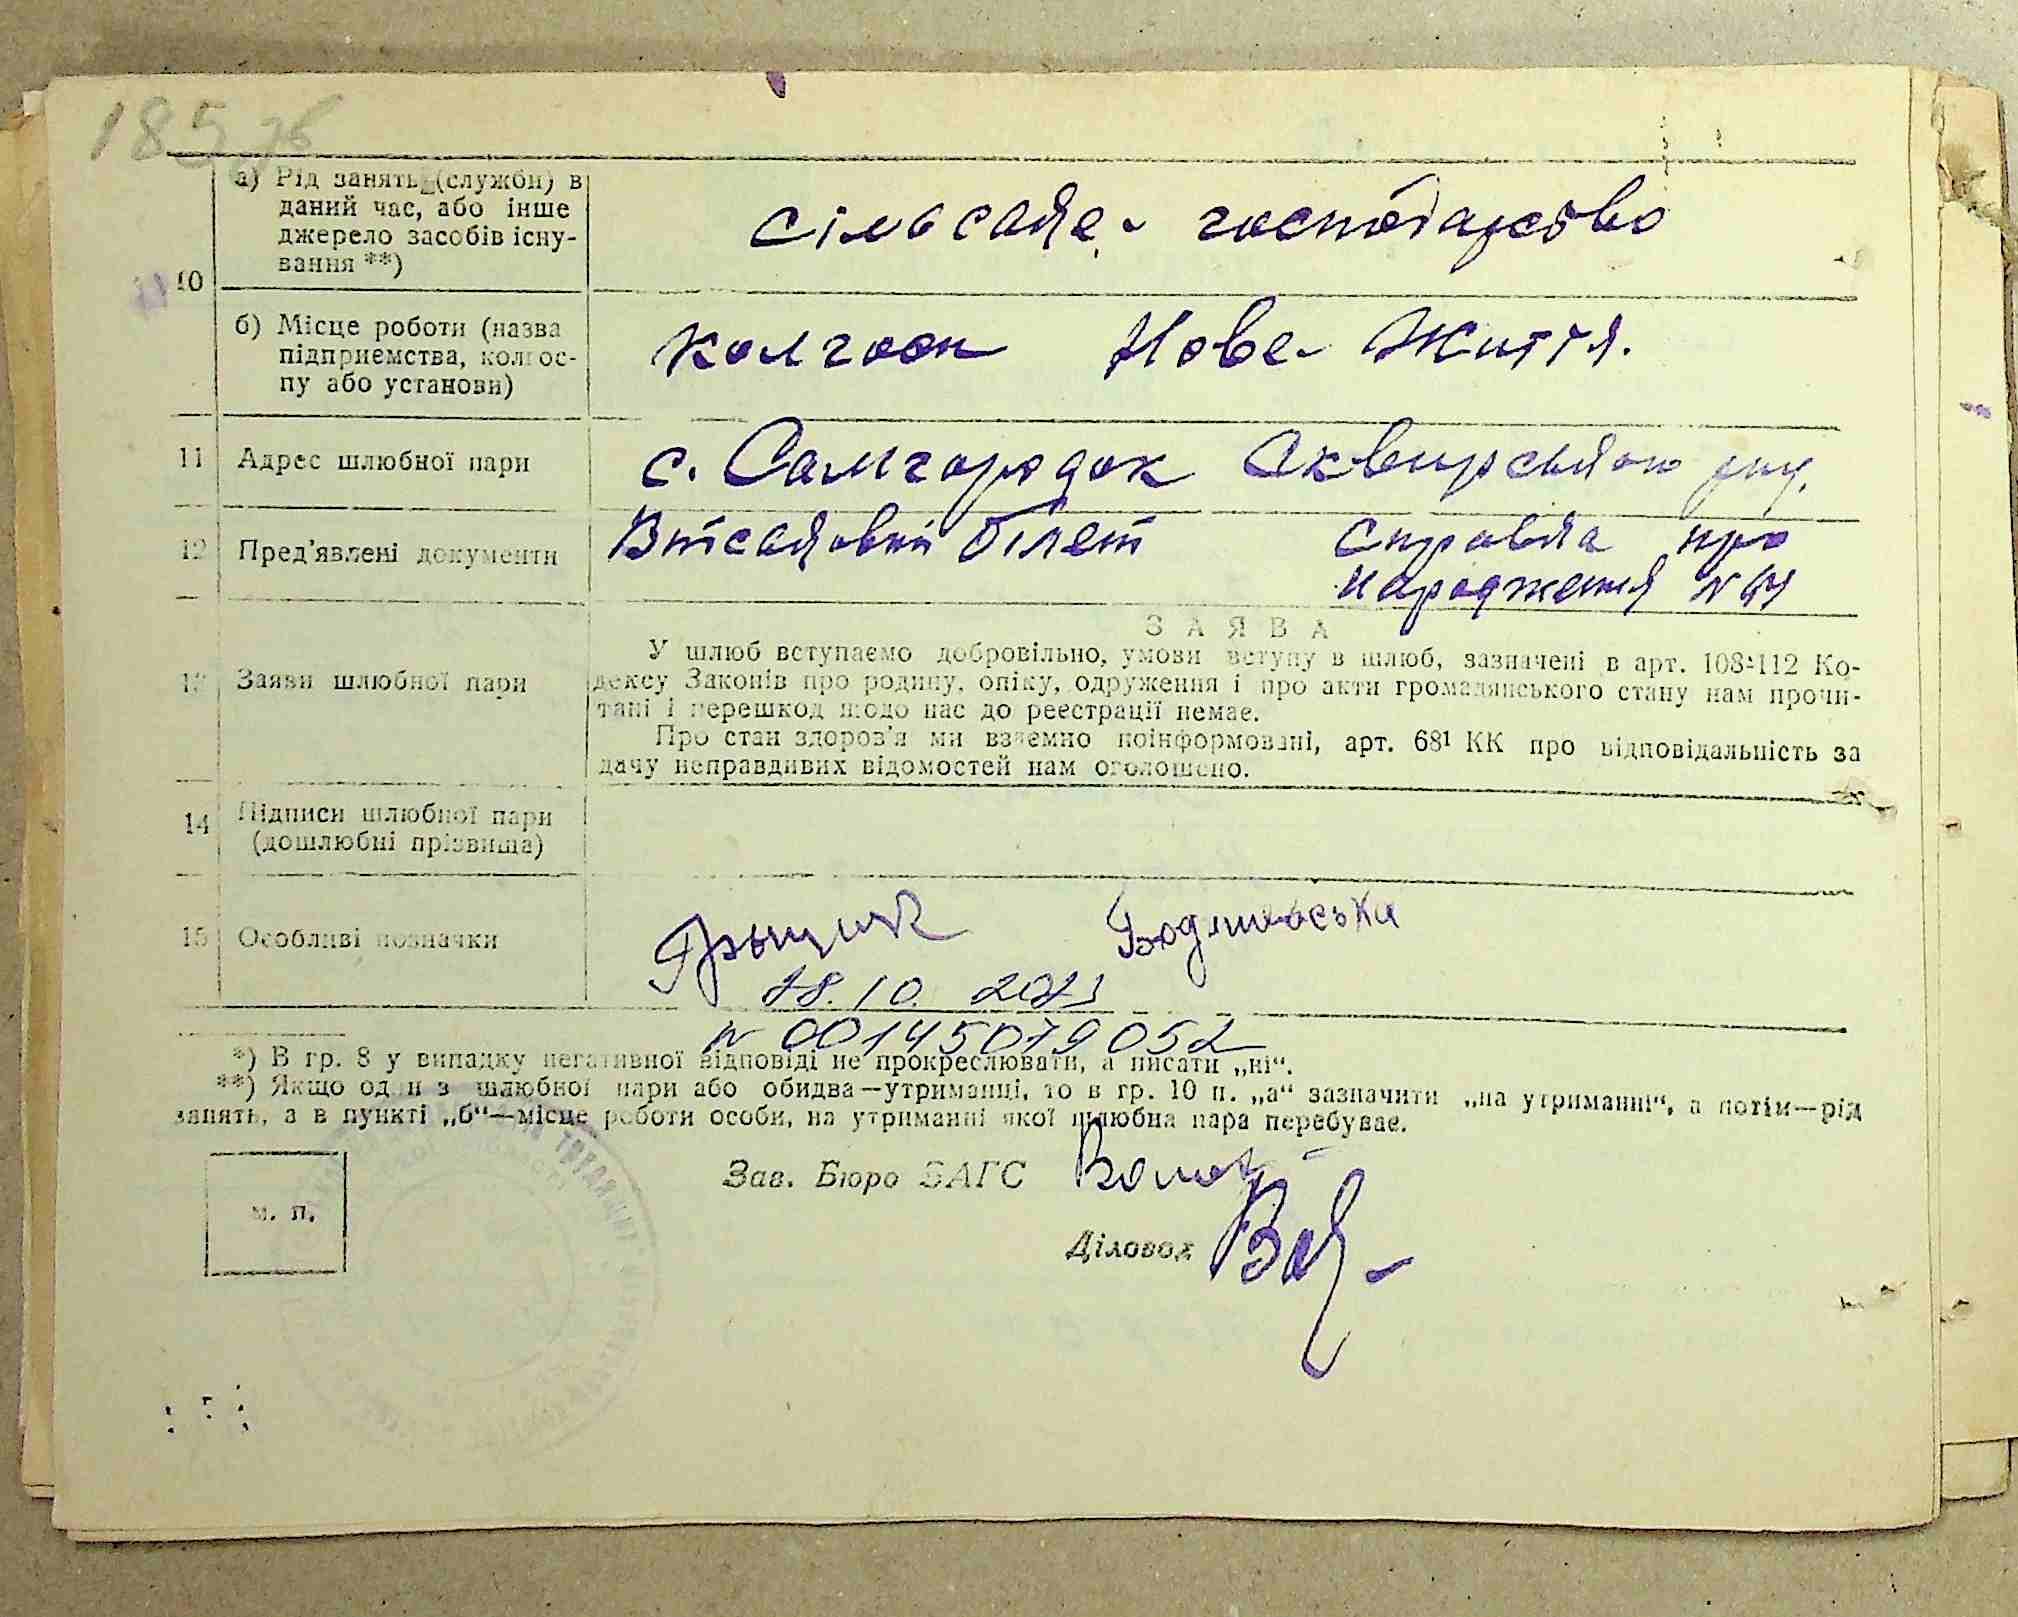 185
а) Рід занять (служби) в
даний час, або інше
джерело засобів існу-
вання **)
сільське господарство
10
б) Місце роботи (назва
підприємства, колгос-
пу або установи)
колгосп Нове Життя.
11 Адрес шлюбної пари
с. Самгородок Сквирського рну.
12 Пред'явлені документи
Військовий білет справка про
народження N
13 Заяви шлюбної пари
ЗАЯВА
У шлюб вступаємо добровільно, умови вступу в шлюб, зазначені в арт. 108-112 Ко-
дексу Законів про родину, опіку, одруження і про акти громадянського стану нам прочи-
тані і перешкод щодо нас до реєстрації немає.
Про стан здоров'я ми взаємно поінформовані, арт. 68¹ КК про відповідальність за
дачу неправдивих відомостей нам оголошено.
14 Підписи шлюбної пари
(дошлюбні прізвища)
15 Особливі позначки
18.10. 2023
N 00145079052
*) В гр. 8 у випадку негативної відповіді не прокреслювати, а писати „ні“.
**) Якщо один з шлюбної пари або обидва—утриманці, то в гр. 10 п. „а“ зазначити „на утриманні“, а потім—рід
занять, а в пункті „б“—місце роботи особи, на утриманні якої шлюбна пара перебуває.
м. п.
Зав. Бюро ЗАГС
Діловод